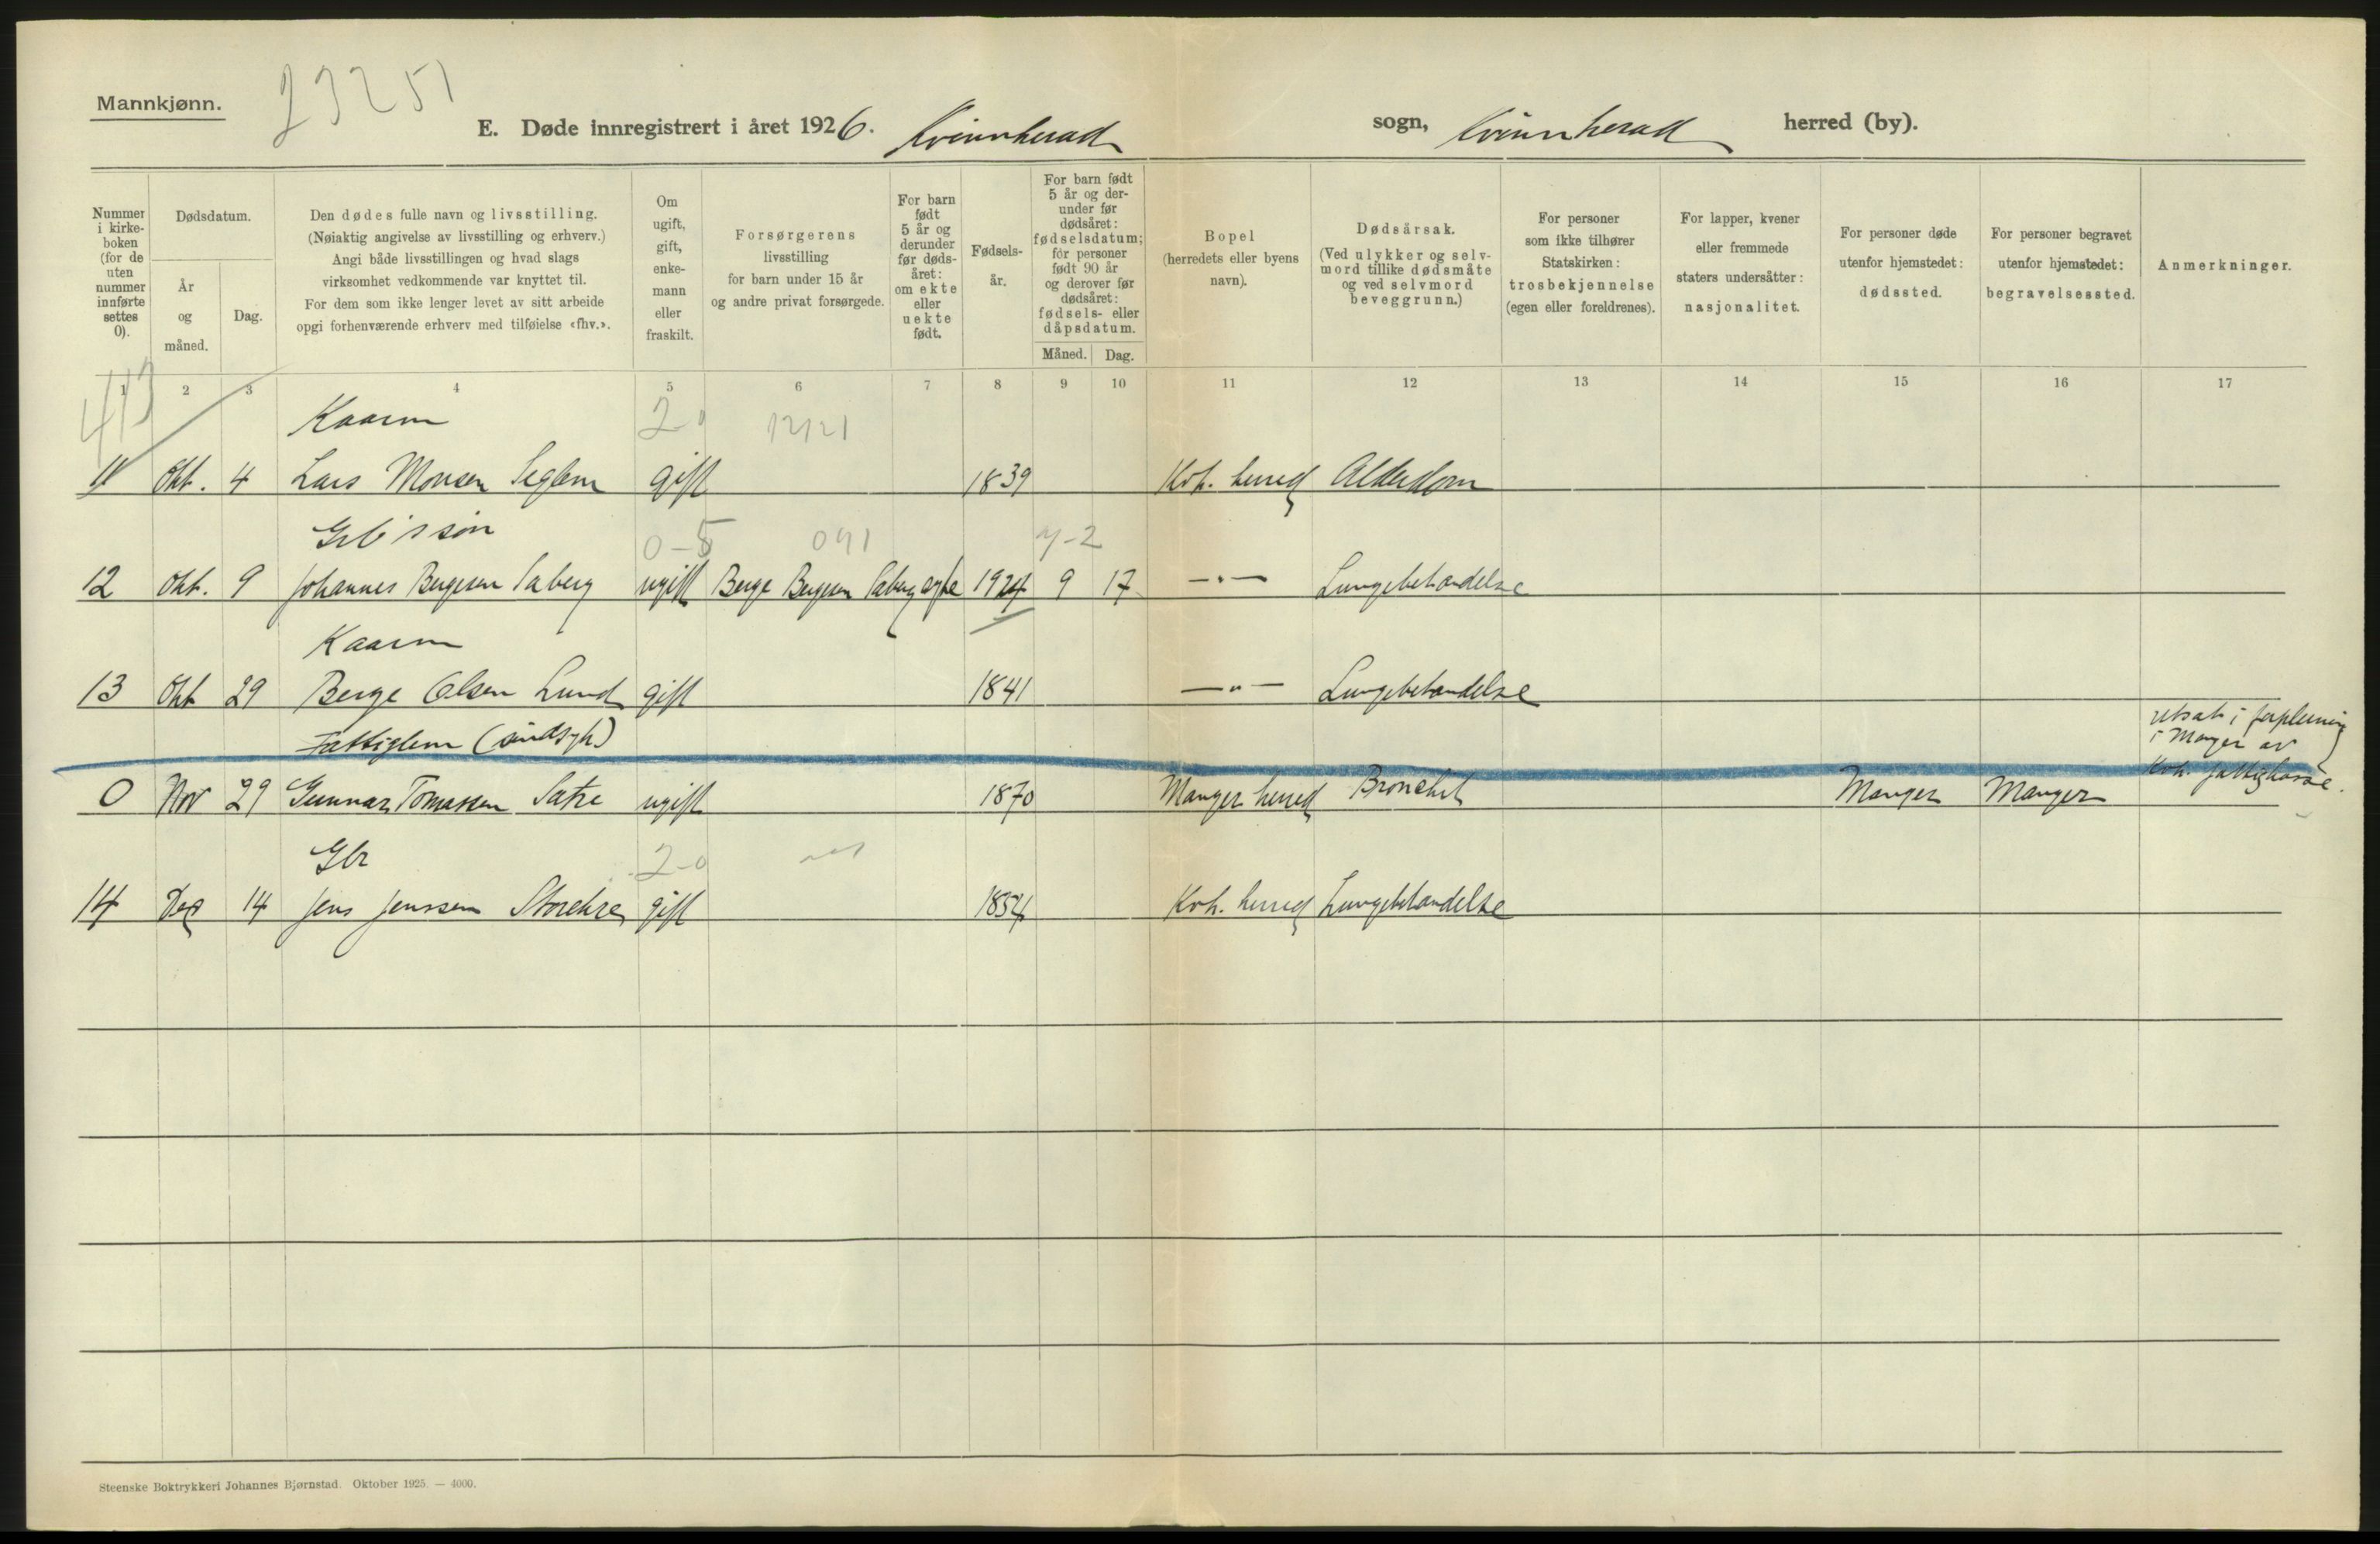 Mannkjønn.
23251
E. Døde innregistrert i året 1926. Kvinnherad sogn, Kvinnherad herred (by).
Nummer i kirkeboken (for de uten nummer innførte settes 0).
Dødsdatum.
År og måned.
Dag.
Den dødes fulle navn og livsstilling.
(Nøiaktig angivelse av livsstilling og erhverv.)
Angi både livsstillingen og hvad slags
virksomhet vedkommende var knyttet til.
For dem som ikke lenger levet av sitt arbeide
opgi forhenværende erhverv med tilføielse «fhv.».
Om ugift, gift, enkemann eller fraskilt.
Forsørgerens
livsstilling
for barn under 15 år
og andre privat forsørgede.
For barn født 5 år og derunder før dødsåret: om ekte eller uekte født.
Fødselsår.
For barn født 5 år og derunder før dødsåret: fødselsdatum; for personer født 90 år og derover før dødsåret: fødsels- eller dåpsdatum.
Måned.
Dag.
Bopel
(herredets eller byens
navn).
Dødsårsak.
(Ved ulykker og selvmord tillike dødsmåte og ved selvmord beveggrunn.)
For personer
som ikke tilhører
Statskirken:
trosbekjennelse
(egen eller foreldrenes).
For lapper, kvener
eller fremmede
staters undersåtter:
nasjonalitet.
For personer døde
utenfor hjemstedet:
dødssted.
For personer begravet
utenfor hjemstedet:
begravelsessted.
Anmerkninger.
1 2 3 4 5 6 7 8 9 10 11 12 13 14 15 16 17
413
Kaarm 2-0 12121
11 Okt. 4 Lars Monsen Seglem gift 1839 Kvh. herred Alderdom
Gbrs søn 0-5 091 4-2
12 Okt. 9 Johannes Bergesen Saberg ugift Berge Bergesen Saberg egte 1924 9 17 —〃— Lungebetændelse
Kaarm
13 Okt 29 Berge Olsen Lund gift 1841 —〃— Lungebetændelse
Fattiglem (sindsyk) utsat i forpleining
i Manger av
0 Nov 29 Gunnar Tomassen Sætre ugift 1870 Manger herred Bronchit Manger Manger Kvh. fattigkasse.
Gbr 2-0
14 Des 14 Jens Jenssen Storekre gift 1854 Kvh. herred Lungebetændelse
Steenske Boktrykkeri Johannes Bjørnstad. Oktober 1925. — 4000.